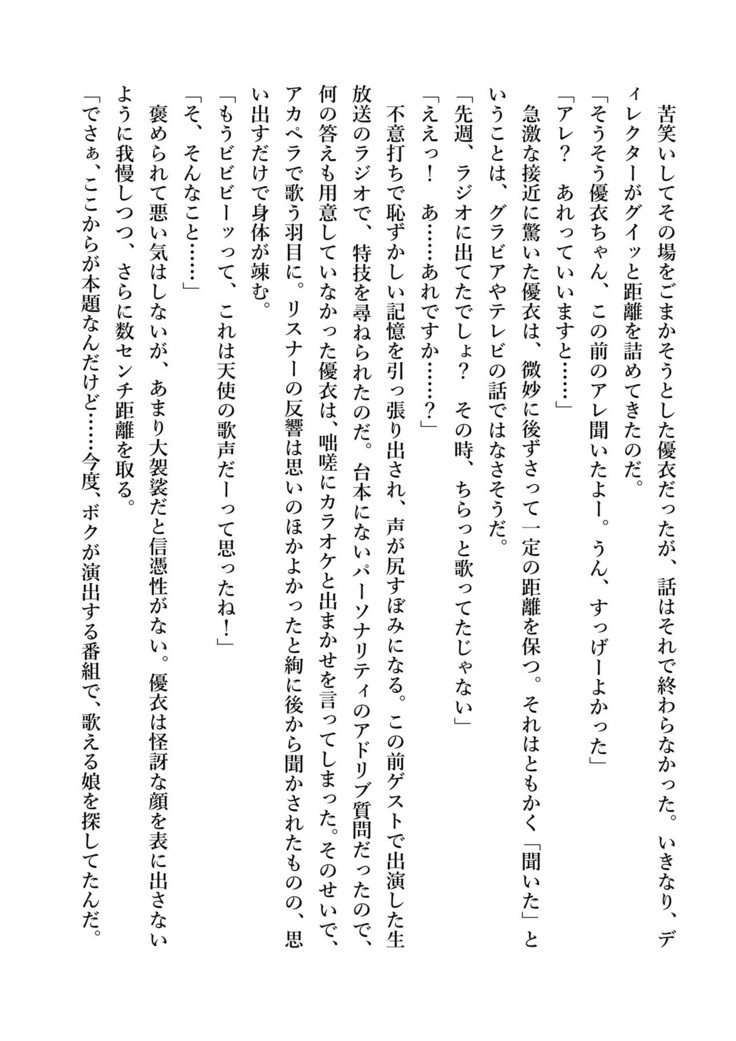 苦笑いしてその場をごまかそうとした優衣だったが、話はそれで終わらなかった。いきなり、デ
ィレクターがグイッと距離を詰めてきたのだ。
「そうそう優衣ちゃん、この前のアレ聞いたよー。うん、すっげーよかった」
「アレ？　あれっていいますと……」
　急激な接近に驚いた優衣は、微妙に後ずさって一定の距離を保つ。それはともかく「聞いた」と
いうことは、グラビアやテレビの話ではなさそうだ。
「先週、ラジオに出てたでしょ？　その時、ちらっと歌ってたじゃない」
「ええっ！　あ……あれですか……？」
　不意打ちで恥ずかしい記憶を引っ張り出され、声が尻すぼみになる。この前ゲストで出演した生
放送のラジオで、特技を尋ねられたのだ。台本にないパーソナリティのアドリブ質問だったので、
何の答えも用意していなかった優衣は、咄嗟にカラオケと出まかせを言ってしまった。そのせいで、
アカペラで歌う羽目に。リスナーの反響は思いのほかよかったと絢に後から聞かされたものの、思
い出すだけで身体が竦む。
「もうビビビーッって、これは天使の歌声だーって思ったね！」
「そ、そんなこと……」
　褒められて悪い気はしないが、あまり大袈裟だと信憑性がない。優衣は怪訝な顔を表に出さない
ように我慢しつつ、さらに数センチ距離を取る。
「でさぁ、ここからが本題なんだけど……今度、ボクが演出する番組で、歌える娘を探してたんだ。